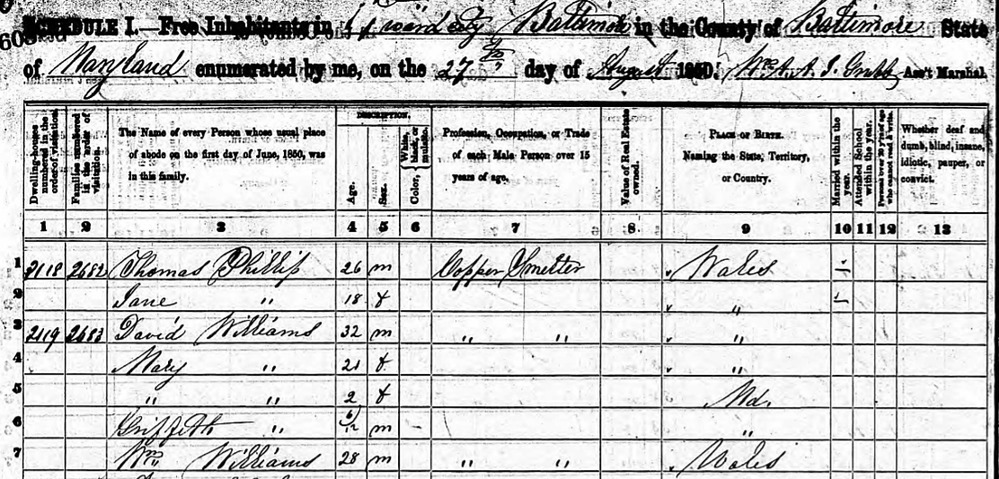 SCHEDULE I.—Free Inhabitants in ward City Baltimore in the County of Baltimore State
of Maryland enumerated by me, on the 27 day of August 1850. Ass't Marshal.
Dwelling-houses numbered in the order of visitation.
Families numbered in the order of visitation.
The Name of every Person whose usual place of abode on the first day of June, 1850, was in this family.
DESCRIPTION.
Age.
Sex.
Color, White, black, or mulatto.
Profession, Occupation, or Trade of each Male Person over 15 years of age.
Value of Real Estate owned.
PLACE OF BIRTH. Naming the State, Territory, or Country.
Married within the year.
Attended School within the year.
Persons over 20 y'rs of age who cannot read & write.
Whether deaf and dumb, blind, insane, idiotic, pauper, or convict.
1 2 3 4 5 6 7 8 9 10 11 12 13
1 2118 2682 Thomas Phillip 26 m Copper Smelter Wales 1
2 Jane " 18 f " 1
3 2119 2683 David Williams 32 m " " "
4 Mary " 21 f "
5 " " 2 f Md.
6 Griffith " 6/12 m "
7 Wm Williams 28 m " " Wales